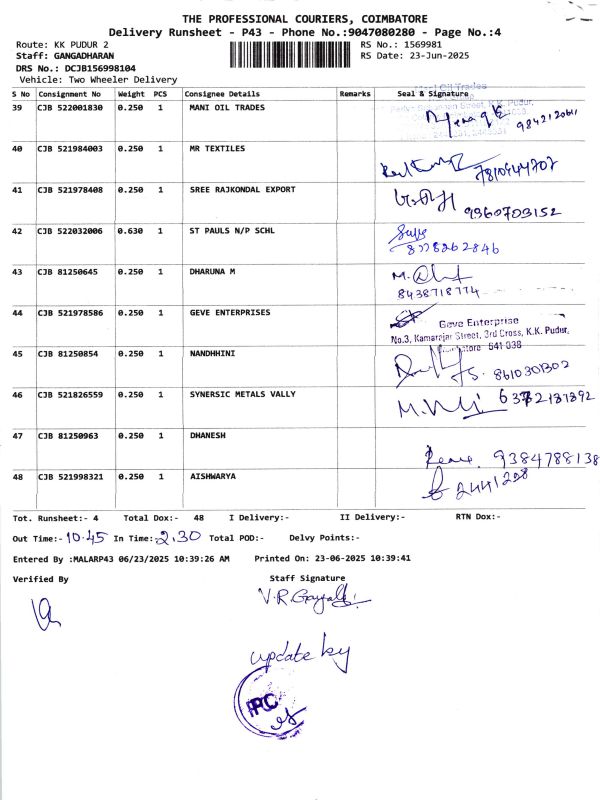 THE PROFESSIONAL COURIERS, COIMBATORE
Delivery Runsheet - P43 - Phone No.:9047080280 - Page No.:4
Route: KK PUDUR 2 RS No.: 1569981
Staff: GANGADHARAN RS Date: 23-Jun-2025
DRS No.: DCJB156998104
Vehicle: Two Wheeler Delivery
S No Consignment No Weight PCS Consignee Details Remarks Seal & Signature
39 CJB 522001830 0.250 1 MANI OIL TRADES
40 CJB 521984003 0.250 1 MR TEXTILES
41 CJB 521978408 0.250 1 SREE RAJKONDAL EXPORT 9360703152
42 CJB 522032006 0.630 1 ST PAULS N/P SCHL 8778262846
43 CJB 81250645 0.250 1 DHARUNA M 8438718774
44 CJB 521978586 0.250 1 GEVE ENTERPRISES Geve Enterprise
No.3, Kamarajar Street, 3rd Cross, K.K. Pudur,
641 038
45 CJB 81250854 0.250 1 NANDHHINI 8610301302
46 CJB 521826559 0.250 1 SYNERSIC METALS VALLY
47 CJB 81250963 0.250 1 DHANESH 9384788138
48 CJB 521998321 0.250 1 AISHWARYA 2441208
Tot. Runsheet:- 4 Total Dox:- 48 I Delivery:- II Delivery:- RTN Dox:-
Out Time:- 10.45 In Time:- 2.30 Total POD:- Delvy Points:-
Entered By :MALARP43 06/23/2025 10:39:26 AM Printed On: 23-06-2025 10:39:41
Verified By Staff Signature
update by